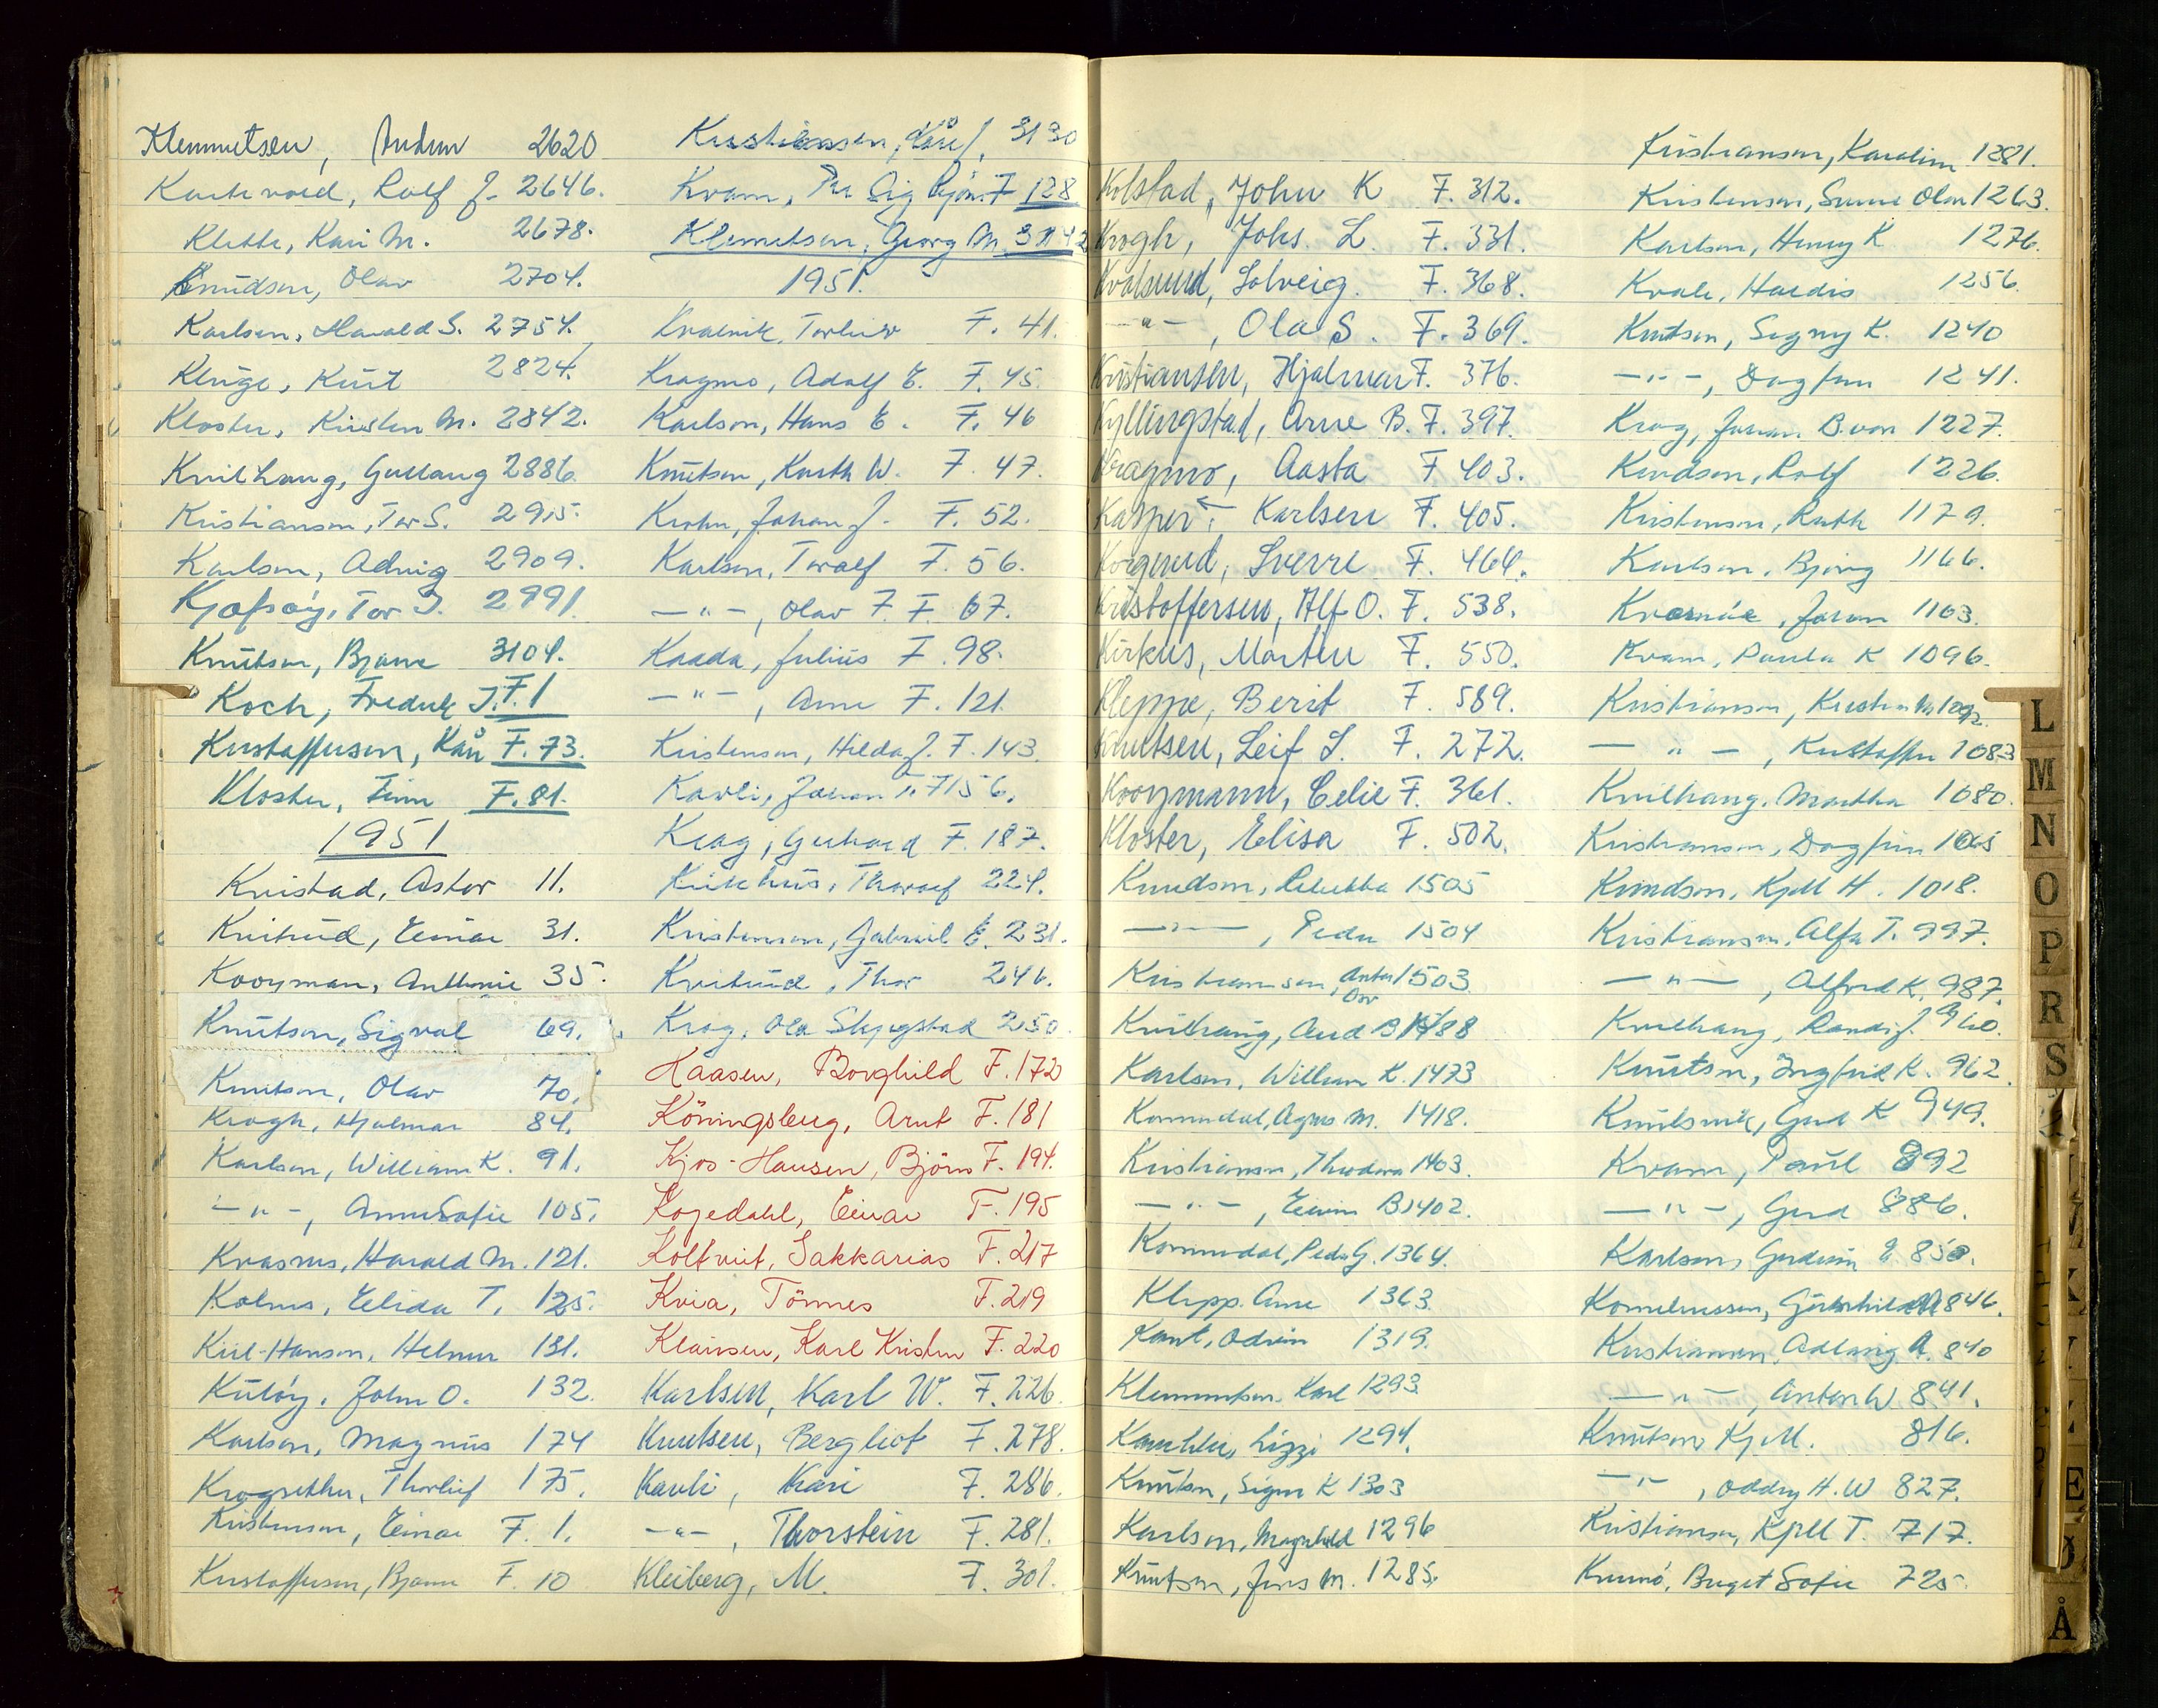 Klemmetsen, Audun 2620
Kartevold, Rolf J. 2646.
Klette, Kari M. 2678.
Knudsen, Olav 2704.
Karlsen, Harald S. 2754.
Kluge, Kurt 2824.
Kloster, Kirsten M. 2842.
Kvilhaug, Gullaug 2886.
Kristiansen, Tor S. 2915.
Karlsen, Advig 2909.
Kjofsøy, Tor I. 2991.
Knutsen, Bjarne 3104.
Koch, Fredrik J. F. 1
Kristoffersen, Kåre F. 73.
Kloster, Finn F. 81.
1951
Knistad, Astor 11.
Kvitrud, Einar 31.
Kooyman, Anthonie 35.
Knutsen, Sigval 69.
Knutsen, Olav 70.
Krogh, Hjalmar 84.
Karlsen, William K. 91.
— " —, Anna Sofie 105.
Kvasnes, Harald M. 121.
Kolnes, Elida T. 125.
Kiil-Hansen, Helmer 131.
Kuløy, John O. 132.
Karlsen, Magnus 174
Krogsæther, Thorleif 175.
Kristensen, Einar F. 1.
Kristoffersen, Bjarne F. 10
Kristiansen, Kåre J. 3130
Kvam, Per Sig Bjørn F 128
Klemetsen, Georg M. 3142
1951.
Kvalvik, Torleiv F. 41.
Kragmo, Adolf E. F. 45.
Karlsen, Hans E. F. 46
Knutsen, Karth W. F. 47.
Krohn, Johan J. F. 52.
Karlsen, Toralf F. 56.
— " —, Olav F. F. 67.
Kaada, Julius F. 98.
— " —, Arne F. 121.
Kristensen, Hilda J. F. 143.
Kavli, Johan T. F 156.
Krag, Gerhard F. 187.
Kirkhus, Thoralf 224.
Kristensen, Gabriel E. 231.
Kvitrud, Thor 246.
Krog, Ola Skjegstad 250.
Haasen, Borghild F. 172
Köningsberg, Arnt F. 181
Kjos-Hansen, Björn F. 194.
Kogedahl, Einar F. 195
Koltveit, Sakkarias F. 217
Kvia, Tönnes F. 219
Klausen, Karl Kristen F. 220
Karlsen, Karl W. F. 226.
Knutsen, Bergliot F. 278.
Kavli, Kari F. 286.
— " —, Thorstein F. 281.
Kleiberg, M. F. 301.
Kolstad, John K F. 312.
Krogh, Johs. L. F. 331.
Kvalsund, Solveig. F. 368.
— " —, Ola S. F. 369.
Kristiansen, Hjalmar F. 376.
Kyllingstad, Arne B. F. 397.
Kragmo, Aasta F 403.
Kasper, Karlsen F. 405.
Korgerud, Sverre F. 464.
Kristoffersen, Alf O. F. 538.
Kirkus, Morten F. 550.
Kleppe, Berit F. 589.
Knutsen, Leif S. F. 272.
Kooymann, Celie F. 361.
Kloster, Elisa F. 502.
Knudsen, 1505
— " —, Peder 1504
Kristiansen, Anton Osv 1503.
Kvilhaug, Aud B 1488
Karlsen, William K. 1473
Kommedal, Agnes M. 1418.
Kristiansen, Theodora 1403.
— " —, Eivin B 1402.
Kommedal, Peder G. 1364.
Klepp, Arne 1363.
Kant, Odvin 1319.
Klemmetsen, Karl 1293.
Lizzi 1294.
Knutsen, Signe K 1303
Karlsen, Magnhild 1296
Knutsen, Jens M. 1285.
Kristiansen, Karoline 1281.
Kristensen, Sunne Olav 1263.
Karlsen, Henry K 1276.
Kvale, Haldis 1256.
Knutsen, Signy K. 1240
— " —, Dagfinn 1241.
Krog, Johan B. von 1227.
Knudsen, Rolf 1226.
Kristensen, Ruth 1179.
Karlsen, Bjørg 1166.
Johan 1103.
Kvam, Paula K 1096.
Kristiansen, Kristen M. 1092.
— " —, Kristoffer 1083
Kvilhaug, Martha 1080.
Kristiansen, Dagfinn 1065
Knudsen, Kjell H. 1018.
Kristiansen, Alfa T. 997.
— " —, Alfred K. 987.
Kvilhaug, Randi J. 960.
Knutsen, Ingfrid K. 962.
Knutsvik, Gerd K 949.
Kvam, Paul 892
— " —, Gerd 886.
Karlsen, Gudrun E. 850.
Korneliussen, Gunhild 846.
Kristiansen, Adling A. 840
— " —, Anton W 841.
Knutsen, Kj. M. 816.
— " —, Oddny H. W 827.
Kristiansen, Kjell T. 717.
Knumó, Birgit Sofie 725.
L
M
N
O
P
R
S
Å